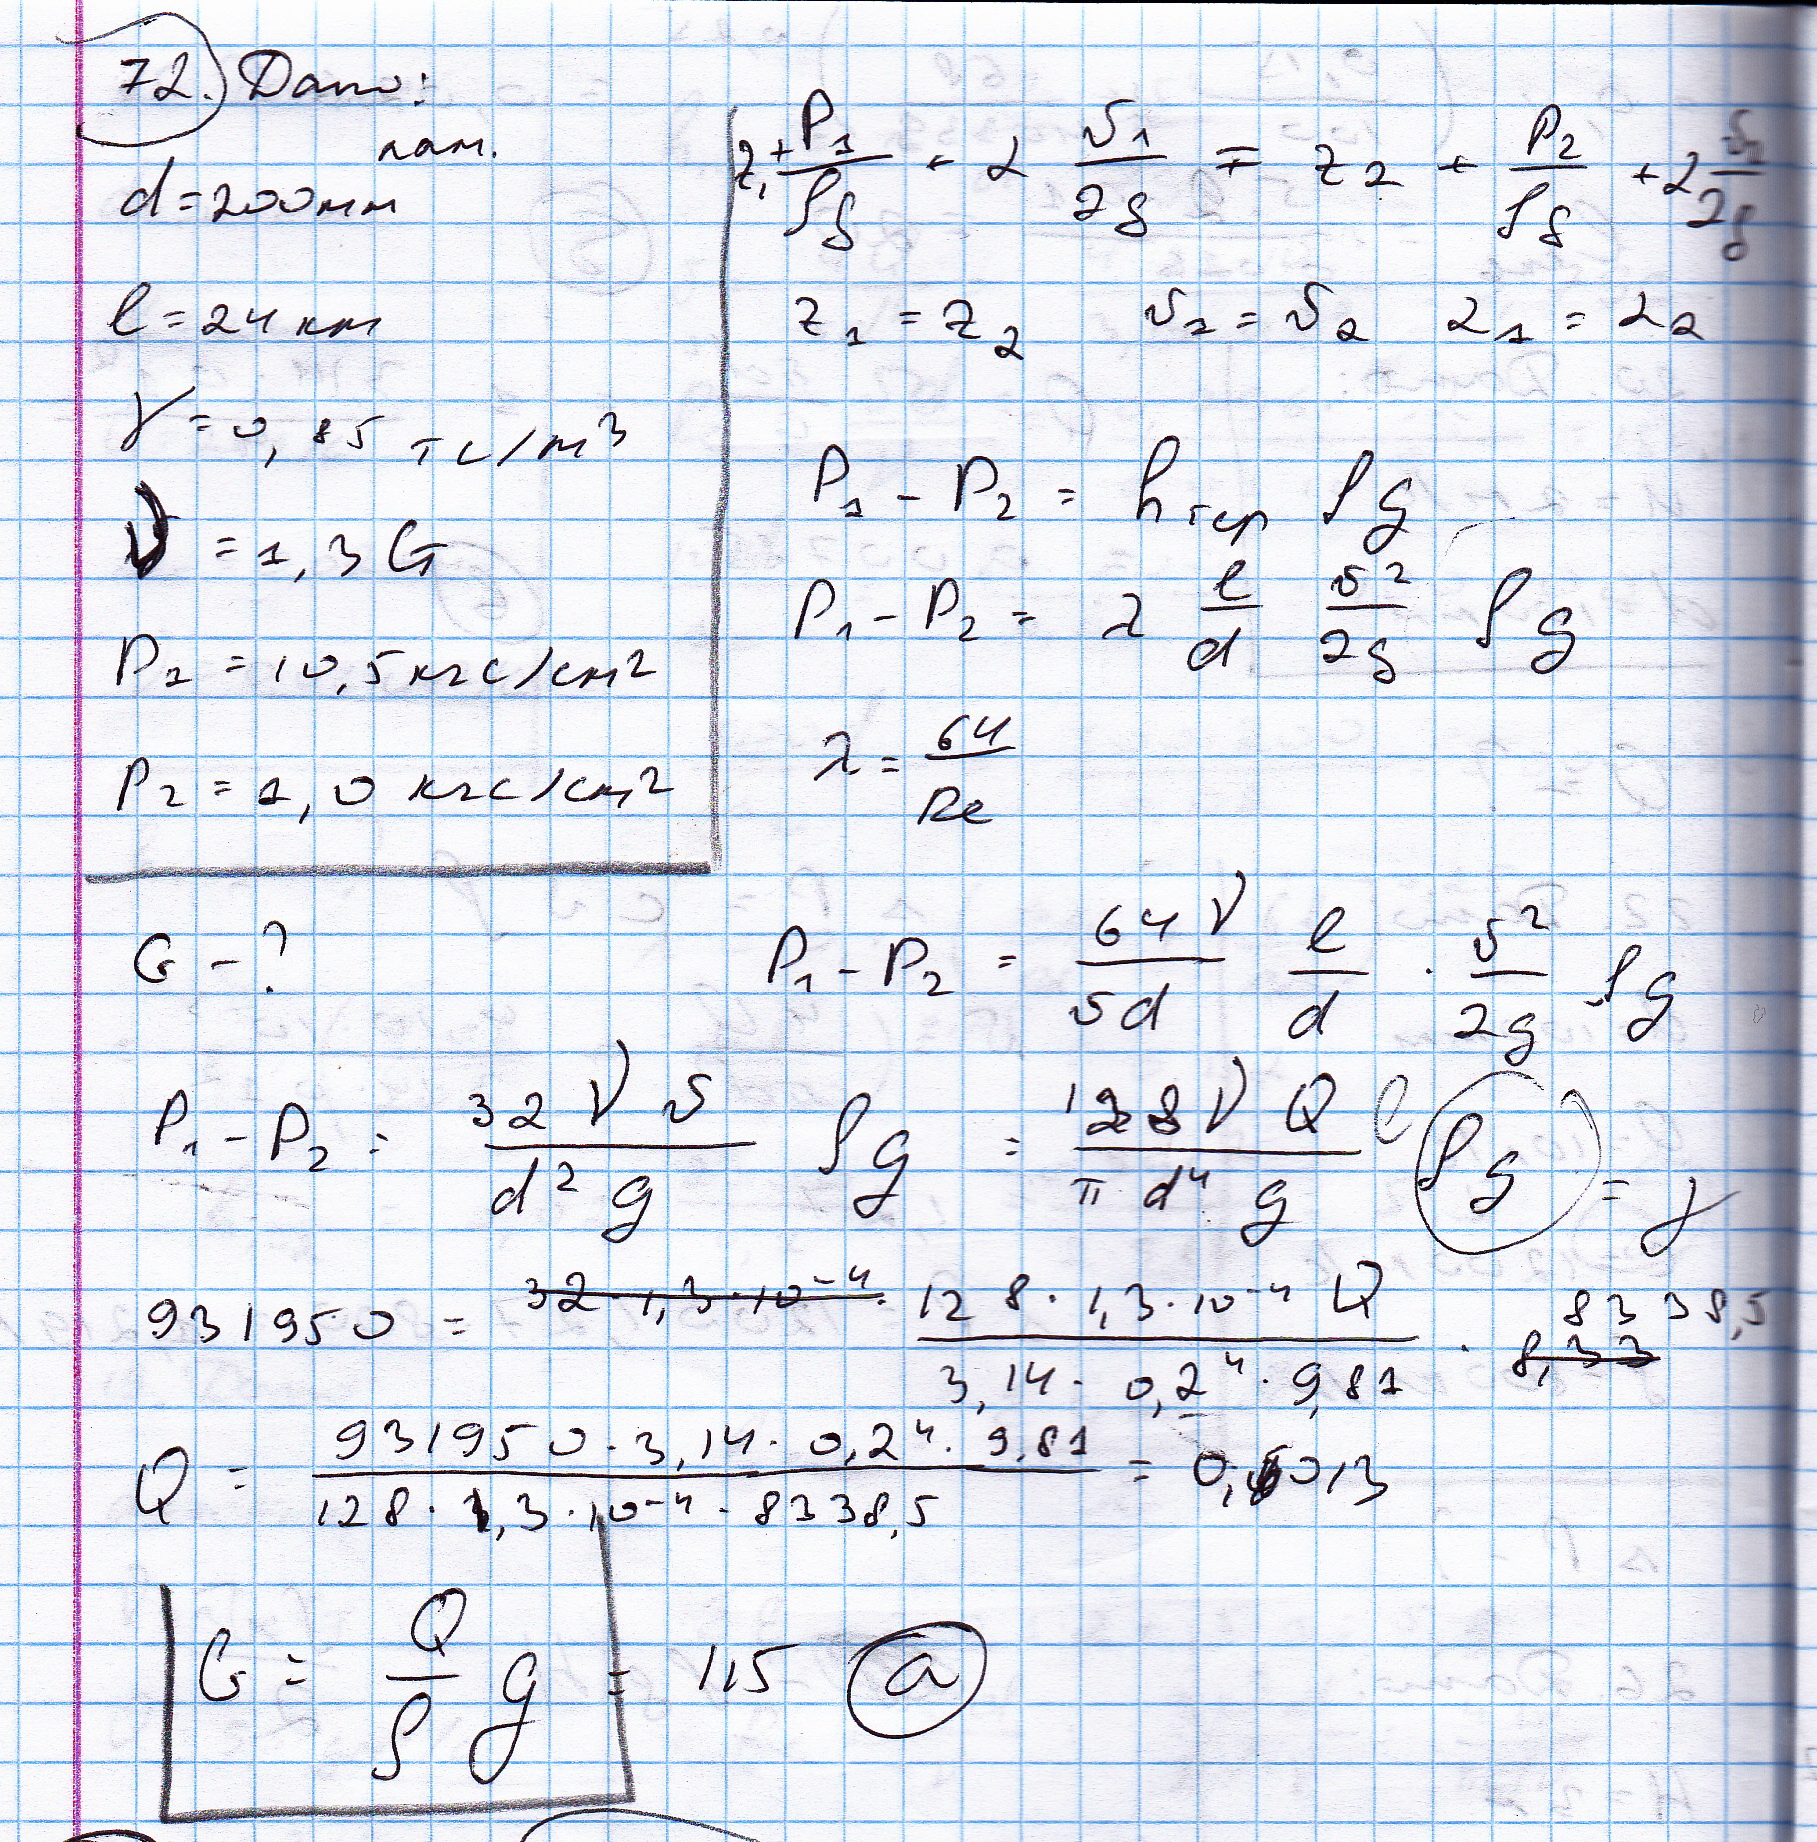 72. Дано:
лам.
d = 200 мм
l = 24 км
γ = 0,85 тс/м³
ν = 1,3 G
P₁ = 10,5 кгс/см²
P₂ = 1,0 кгс/см²
G - ?
z₁ + P₁/ρg + α υ₁/2g = z₂ + P₂/ρg + α υ₂/2g
z₁ = z₂ υ₁ = υ₂ α₁ = α₂
P₁ - P₂ = hтер ρg
P₁ - P₂ = λ l/d υ²/2g ρg
λ = 64/Re
P₁ - P₂ = 64ν/υd l/d · υ²/2g ρg
P₁ - P₂ = 32 ν υ/d² g ρg = 128 ν Q/π d⁴ g l ρg = γ
931950 = 32 · 1,3 · 10⁻⁴ · 128 · 1,3 · 10⁻⁴ Q/3,14 · 0,2⁴ · 9,81 · 8,33 8338,5
Q = 931950 · 3,14 · 0,2⁴ · 9,81/128 · 1,3 · 10⁻⁴ · 8338,5 =
G = Q/ρ g = 115 а